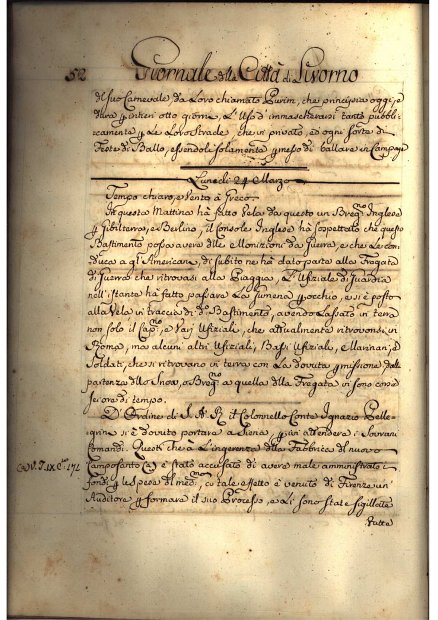 52 Giornale della Città di Livorno
di suo Carnevale da loro chiamato Purim, che principia oggi, e
dura p intieri otto giorni. L'Uso d'immascherarsi tanto pubbli-
camente p le loro strade, che in privato, ed ogni sorte di
Feste di Ballo, essendoli solamente pmesso di ballare in Campagna
Lunedì 24 Marzo
Tempo chiaro, e Vento à Greco.
In questa Mattina hà fatto Vela da questo un Breg.no Inglese
p Gibilterra, e Berlino, il Console Inglese hà sospettato che questo
Bastimento possa avere delle Monizioni da Guerra, e che le con-
duca a gl'Americani, di subito ne hà dato parte alla Fregata
di Guerra che ritrovasi alla Piaggia, L'Ufiziale di Guardia
nell'istante hà fatto passare la Gumena p occhio, e si è posto
alla Vela in traccia di d.o Bastimento, avendo lasciato in terra
non solo il Cap.o, e Varj Ufiziali, che attualmente ritrovonsi in
Roma, ma alcuni altri Ufiziali, Bassi Ufiziali, e Marinari, e
Soldati, che si ritrovano in terra con la dovuta pmissione dalla
partenza dello Snow, o Breg.no a quella della Fregata vi sono corse
sei ore di tempo.
D'Ordine di S. A. R. il Colonnello Conte Ignazio Pelle-
grini si è dovuto portare a Siena, p ivi attendere i Sovrani
Comandi. Questi che à l'ingerenza della Fabbrica del nuovo
Camposanto (a) è stato accusato di avere male amministrato i
fondi, p le spese del med.mo, a tale effetto è venuto di Firenze un'
Auditore p formare il suo Processo, e Li sono state sigillate
tutte
(a) V. T. IX C.e 172